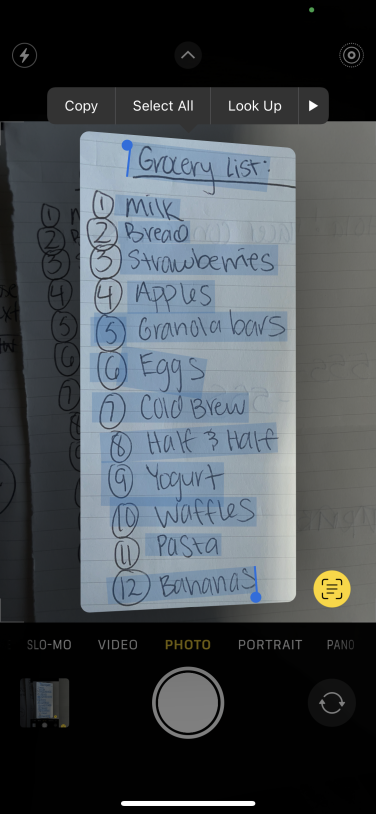 Copy Select All Look Up
Grocery list:
1 milk
2 Bread
3 Strawberries
4 Apples
5 Granola bars
6 Eggs
7 Cold Brew
8 Half & Half
9 Yogurt
10 Waffles
11 Pasta
12 Bananas
SLO-MO VIDEO PHOTO PORTRAIT PANO